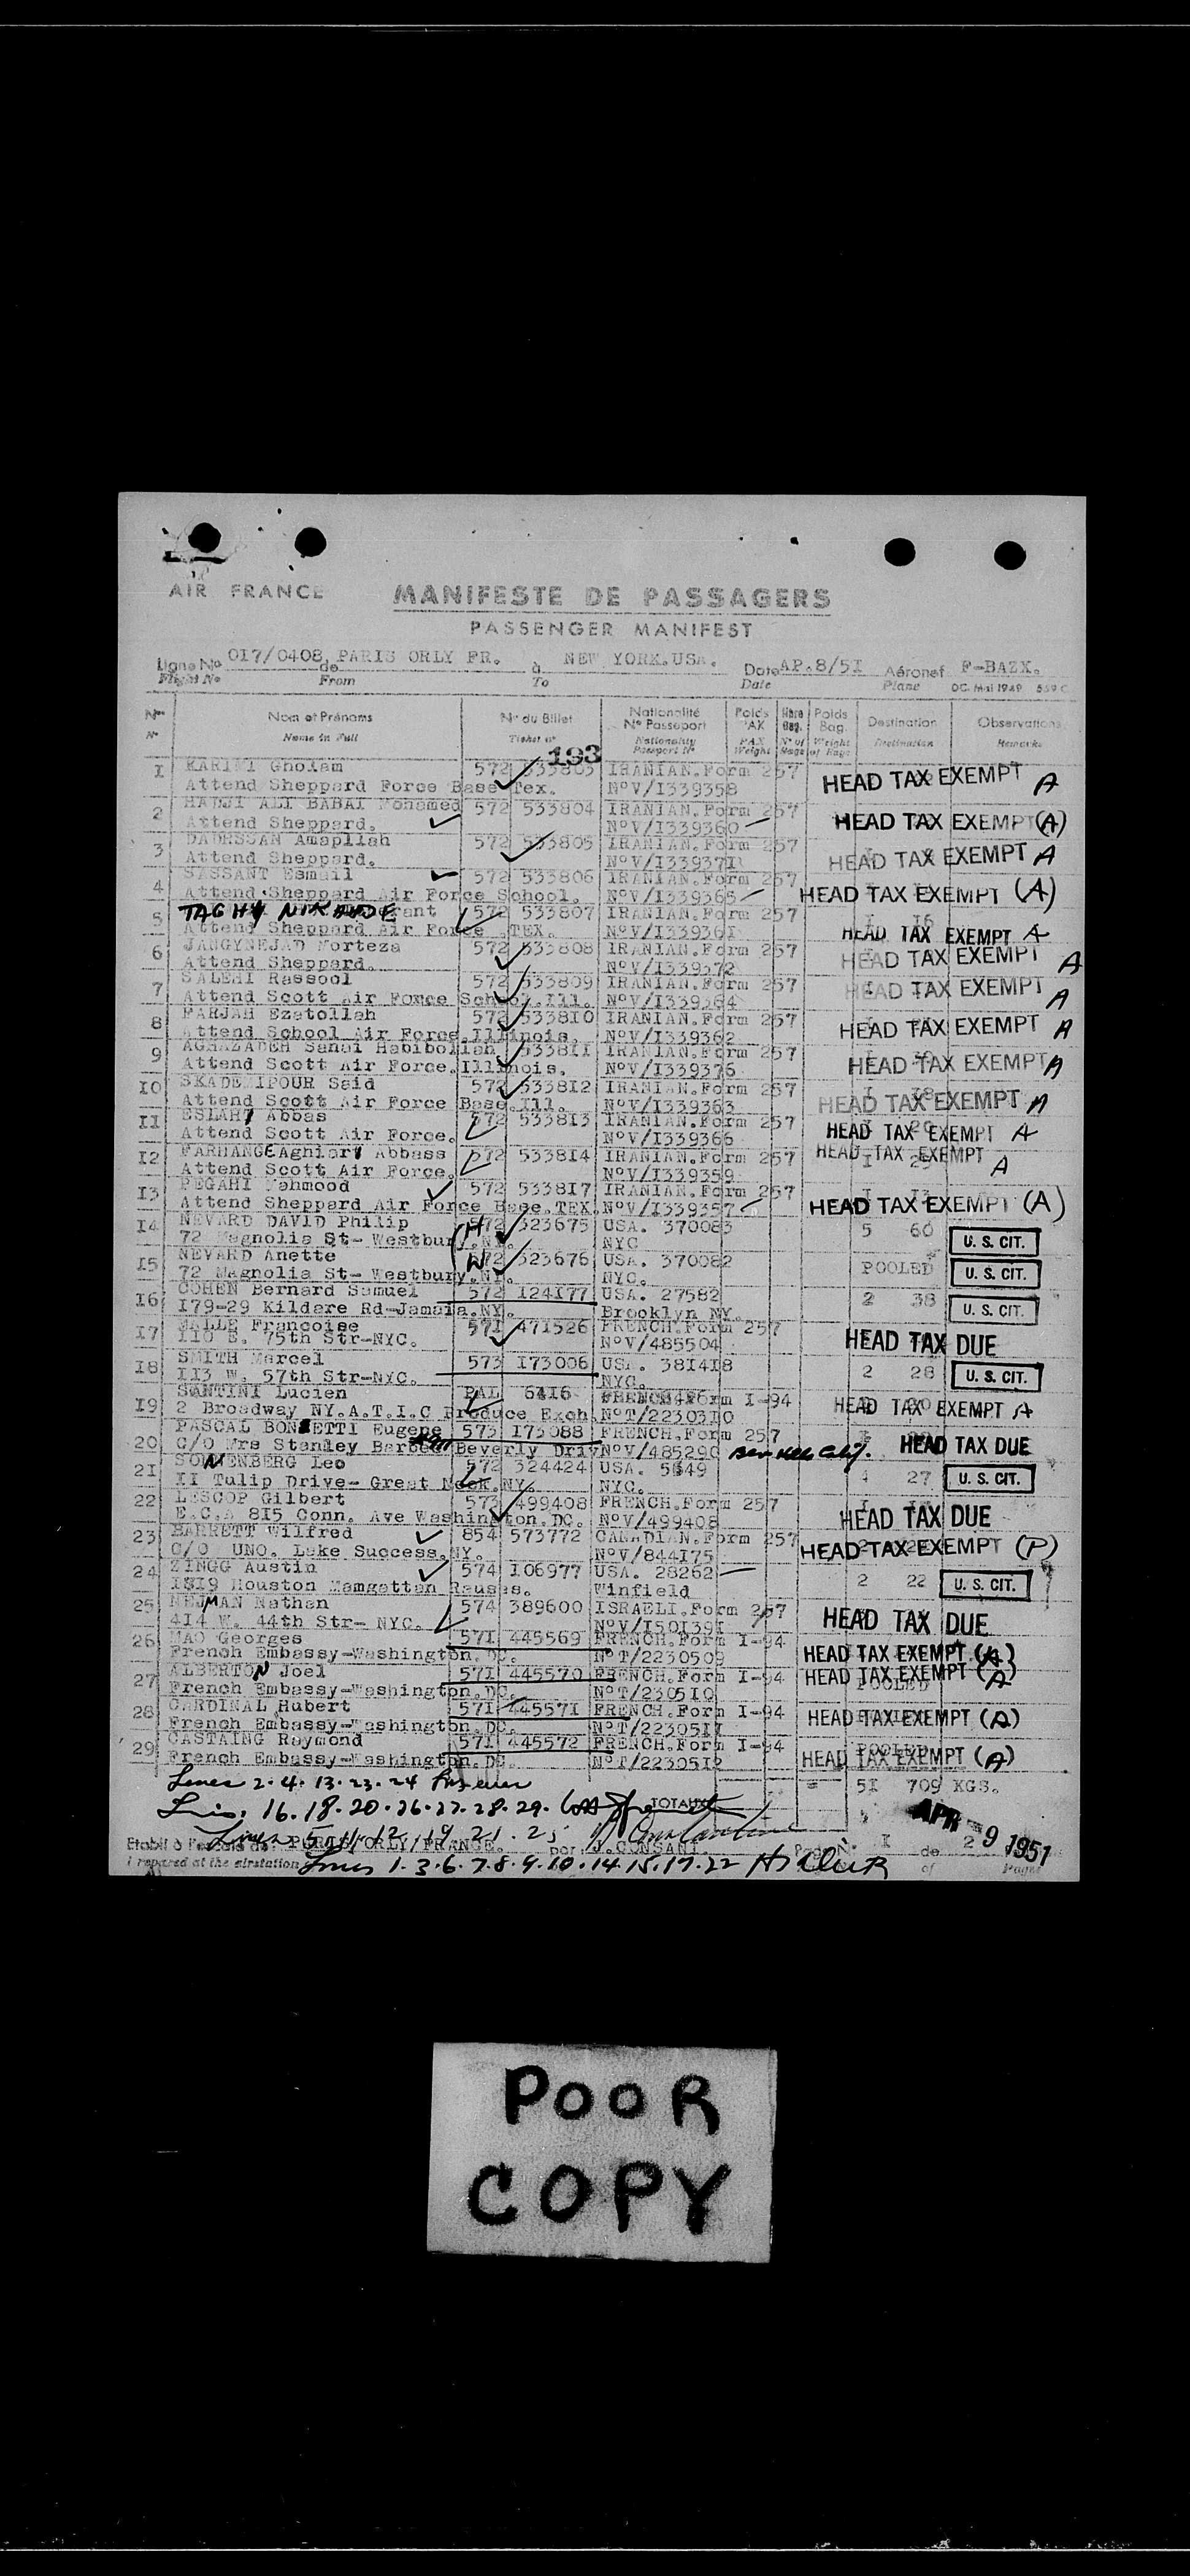 AIR FRANCE
MANIFESTE DE PASSAGERS
PASSENGER MANIFEST
Ligne No 017/0408 de PARIS ORLY FR. à NEW YORK.USA. Date AP.8/5I Aéronef F-BAZX.
Flight No From To Date Plane DC. Mai 1949 559 C
Nos Nom et Prénoms No du Billet Nationalité No Passeport Poids PAX Nbre Bag. Poids Bag. Destination Observations
No Name in Full Ticket no Nationality Passport No PAX Weight No of Bags Weight of Bags Destination Remarks
193
I KARIMI Gholam 572 533803 IRANIAN.Form 257 HEAD TAX EXEMPT A
Attend Sheppard Force Base Tex. NoV/I339358
2 HADJI ALI BABAI Mohamed 572 533804 IRANIAN.Form 257 HEAD TAX EXEMPT (A)
Attend Sheppard. NoV/I339360
3 DADRSSAN Amapllah 572 533805 IRANIAN.Form 257 HEAD TAX EXEMPT A
Attend Sheppard. NoV/I33937I
4 SASSANT Esmail 572 533806 IRANIAN.Form 257 HEAD TAX EXEMPT (A)
Attend Sheppard Air Force School. NoV/I339365
5 TAGHY 572 533807 IRANIAN.Form 257 I I6
Attend Sheppard Air Force .TEX. NoV/I33936I HEAD TAX EXEMPT A
6 JANGYNEJAD Morteza 572 533808 IRANIAN.Form 257 HEAD TAX EXEMPT A
Attend Sheppard. NoV/I339372
7 SALEHI Rassool 572 533809 IRANIAN.Form 257 HEAD TAX EXEMPT A
Attend Scott Air Force School.Ill. NoV/I339364
8 FARJAH Ezatollah 572 5338I0 IRANIAN.Form 257 HEAD TAX EXEMPT A
Attend School Air Force.Illinois. NoV/I339362
9 AGHAZADEH Sanai Habibollah 5338II IRANIAN.Form 257 HEAD TAX EXEMPT A
Attend Scott Air Force.Illinois. NoV/I339376
I0 SKADEMIPOUR Said 572 5338I2 IRANIAN.Form 257 HEAD TAX EXEMPT A
Attend Scott Air Force Base.Ill. NoV/I339363
II ESLAHY Abbas 572 5338I3 IRANIAN.Form 257 HEAD TAX EXEMPT A
Attend Scott Air Force. NoV/I339366
I2 FARHANGE Aghiary Abbass 572 5338I4 IRANIAN.Form 257 HEAD TAX EXEMPT A
Attend Scott Air Force. NoV/I339359
I3 PEGAHI Mahmood 572 5338I7 IRANIAN.Form 257 HEAD TAX EXEMPT (A)
Attend Sheppard Air Force Base.TEX. NoV/I339357
I4 NEVARD DAVID Philip (H 572 323675 USA. 370083 5 60 U. S. CIT.
72 Magnolia St- Westbury.NY. NYC
I5 NEVARD Anette (W 572 323676 USA. 370082 POOLED U. S. CIT.
72 Magnolia St- Westbury.NY. NYC.
I6 COHEN Bernard Samuel 572 I24I77 USA. 27582 2 38 U. S. CIT.
I79-29 Kildare Rd-Jamaia.NY. Brooklyn NY.
I7 Francoise 57I 47I526 FRENCH.Form 257 HEAD TAX DUE
II0 E. 75th Str-NYC. NoV/485504
I8 SMITH Marcel 573 I73006 USA. 38I4I8 2 28 U. S. CIT.
II3 W. 57th Str-NYC. NYC.
I9 SANTINI Lucien PAL 64I6 FRENCH Form I-94 HEAD TAX EXEMPT A
2 Broadway NY.A.T.I.C Produce Exch. NoT/22303I0
20 PASCAL BONNETTI Eugene 573 I73088 FRENCH.Form 257 HEAD TAX DUE
C/O Mrs Stanley Barbee Beverly Driv NoV/485290 Calif.
2I SONNENBERG Leo 572 324424 USA. 5849 27 U. S. CIT.
II Tulip Drive- Great Neck.NY. NYC.
22 LESCOP Gilbert 573 499408 FRENCH.Form 257 HEAD TAX DUE
E.C.A 8I5 Conn. Ave Washington.DC. NoV/499408
23 BARRETT Wilfred 854 573772 CANADIAN.Form 257 HEAD TAX EXEMPT (P)
C/O UNO. Lake Success.NY. NoV/844I75
24 ZINGG Austin 574 I06977 USA. 28262 2 22 U. S. CIT.
I8I9 Houston Mamgattan Rauses. Winfield
25 NEJMAN Nathan 574 389600 ISRAELI.Form 257 HEAD TAX DUE
4I4 W. 44th Str- NYC. NoV/I50I39I
26 MAO Georges 57I 445569 FRENCH.Form I-94 HEAD TAX EXEMPT (A)
French Embassy-Washington.DC. NoT/2230509
27 ALBERTON Joel 57I 445570 FRENCH.Form I-94 HEAD TAX EXEMPT (A)
French Embassy-Washington.DC. NoT/2305I0 POOLED
28 CARDINAL Hubert 57I 44557I FRENCH.Form I-94 HEAD TAX EXEMPT (A)
French Embassy-Washington.DC. NoT/22305II
29 CASTAING Raymond 57I 445572 FRENCH.Form I-94 HEAD TAX EXEMPT (A)
French Embassy-Washington.DC NoT/22305I2
Lines 2.4.13.23.24
= 5I 709 KGS.
16.18.20.26.27.28.29. TOTAUX
APR -9 1951
Lines 5.11.12.19.21.25
Etabli à l'escale de PARIS/ORLY/FRANCE. par J.CONSANI. Page No I de 2
Prepared at the airstation of Pages
Lines 1.3.6.7.8.9.10.14.15.17.22
POOR
COPY